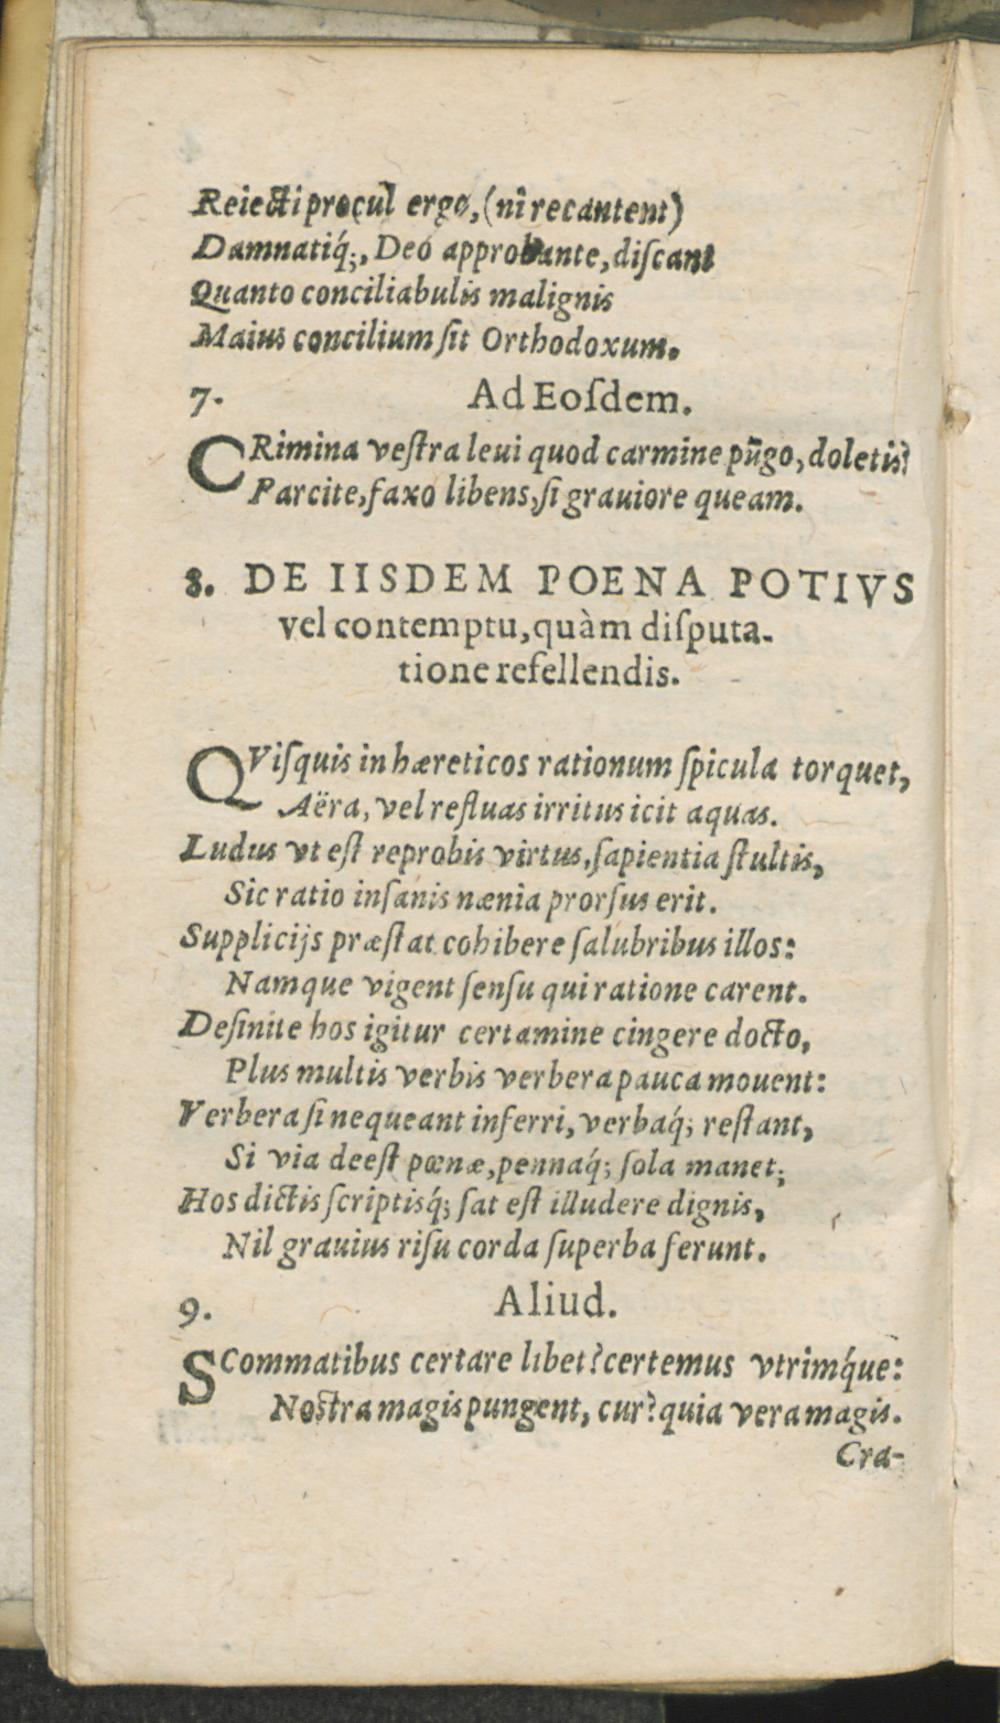 Reiecti procul ergo, (ni recantent)
Damnatiq́;, Deo approbante, diſcant
Quanto conciliabulis malignis
Maius concilium ſit Orthodoxum.
7. Ad Eoſdem.
CRimina veſtra leui quod carmine pūgo, doletis?
Parcite, faxo libens, ſi grauiore queam.
8. DE IISDEM POENA POTIVS
vel contemptu, quàm diſputa-
tione refellendis.
QViſquis in hæreticos rationum ſpicula torquet,
Aëra, vel refluas irritus icit aquas.
Ludus vt eſt reprobis virtus, ſapientia ſtultis,
Sic ratio inſanis nænia prorſus erit.
Supplicijs præſtat cohibere ſalubribus illos:
Namque vigent ſenſu qui ratione carent.
Deſinite hos igitur certamine cingere docto,
Plus multis verbis verbera pauca mouent:
Verbera ſi nequeant inferri, verbaq́; reſtant,
Si via deeſt pœnæ, pennaq́; ſola manet;
Hos dictis ſcriptisq́; ſat eſt illudere dignis,
Nil grauius riſu corda ſuperba ferunt.
9. Aliud.
SCommatibus certare libet? certemus vtrimq́ue:
Noſtra magis pungent, cur? quia vera magis.
Cra-